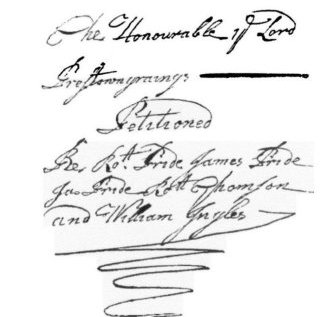 The Honourable ye Lord
Prestowngraings
Petitioned
Re, Rot. Pride James Pride
Ja: Pride Rott Thomson
and William Yngles